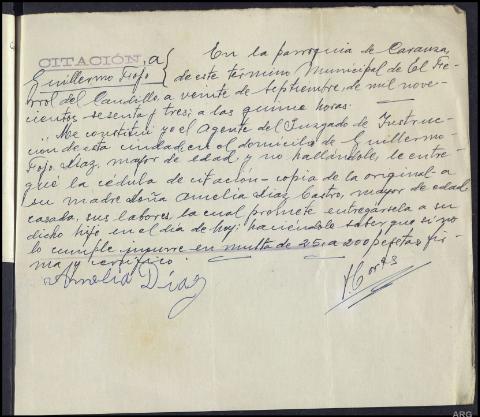 CITACIÓN, a
Guillermo Fojo
En la parroquia de Caranza,
de este término Municipal de El Fe-
rrol del Caudillo, a veinte de Septiembre, de mil nove-
cientos sesenta y tres; a las quince horas.
Me constituí yo el Agente del Juzgado de Instruc-
ción de esta ciudad, en el domicilio de Guillermo
Fojo Diaz, mayor de edad, y no hallándole, le entre-
gué la cédula de citación-copia de la original a
su madre doña Amelia Diaz Castro, mayor de edad
casada, sus labores, la cual promete entregársela a su
dicho hijo en el día de hoy; haciéndole saber que si no
lo cumple incurre en multa de 25, a 200 pesetas, fir-
ma y certifico.
Amelia Díaz
Y. Cortés
ARG